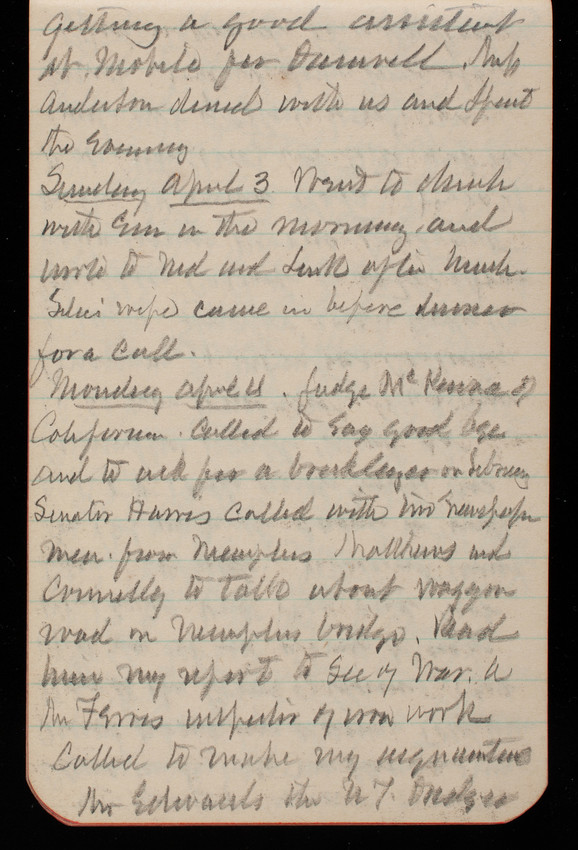 getting a good assistant
at Mobile for Damrell. Miss
Anderson dined with us and spent
the evening
Sunday April 3 Went to church
with Em in the morning and
wrote to Ned and after lunch.
wife came in before dinner
for a call.
Monday April 4. Judge McKenna of
California. Called to say good bye
and to ask for a
Senator Harris called with two newspaper
men from Memphis Matthews and
Connelly to talk about waggon
road on Memphis bridge. Read
him my report to Sec of War. A
Mr Ferris inspector of iron work
Called to make my acquaintance
Mr Edwards the N Y.